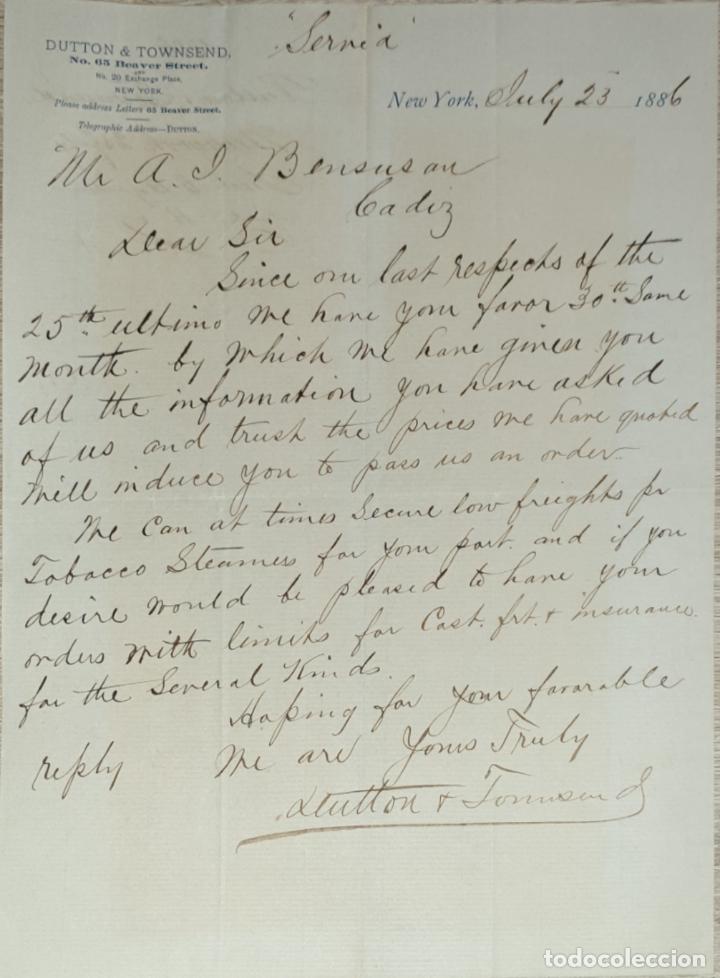 DUTTON & TOWNSEND,
No. 65 Beaver Street,
AND
No. 20 Exchange Place,
NEW YORK.
Please address Letters 65 Beaver Street.
Telegraphic Address—DUTTON.
"Servia"
New York, July 23 1886
Mr A. J. Bensusan
Cadiz
Dear Sir
Since our last respects of the
25th ultimo We have your favor 30th Same
Month. by which We have given you
all the information you have asked
of us and trust the prices We have quoted
Will induce you to pass us an order.
We Can at times Secure low freights pr
Tobacco Steamers for your port. and if you
desire would be pleased to have your
orders with limits for Cost. frt. & insurance.
for the Several Kinds.
Hoping for your favorable
reply We are Yours Truly
Dutton & Townsend
todocoleccion